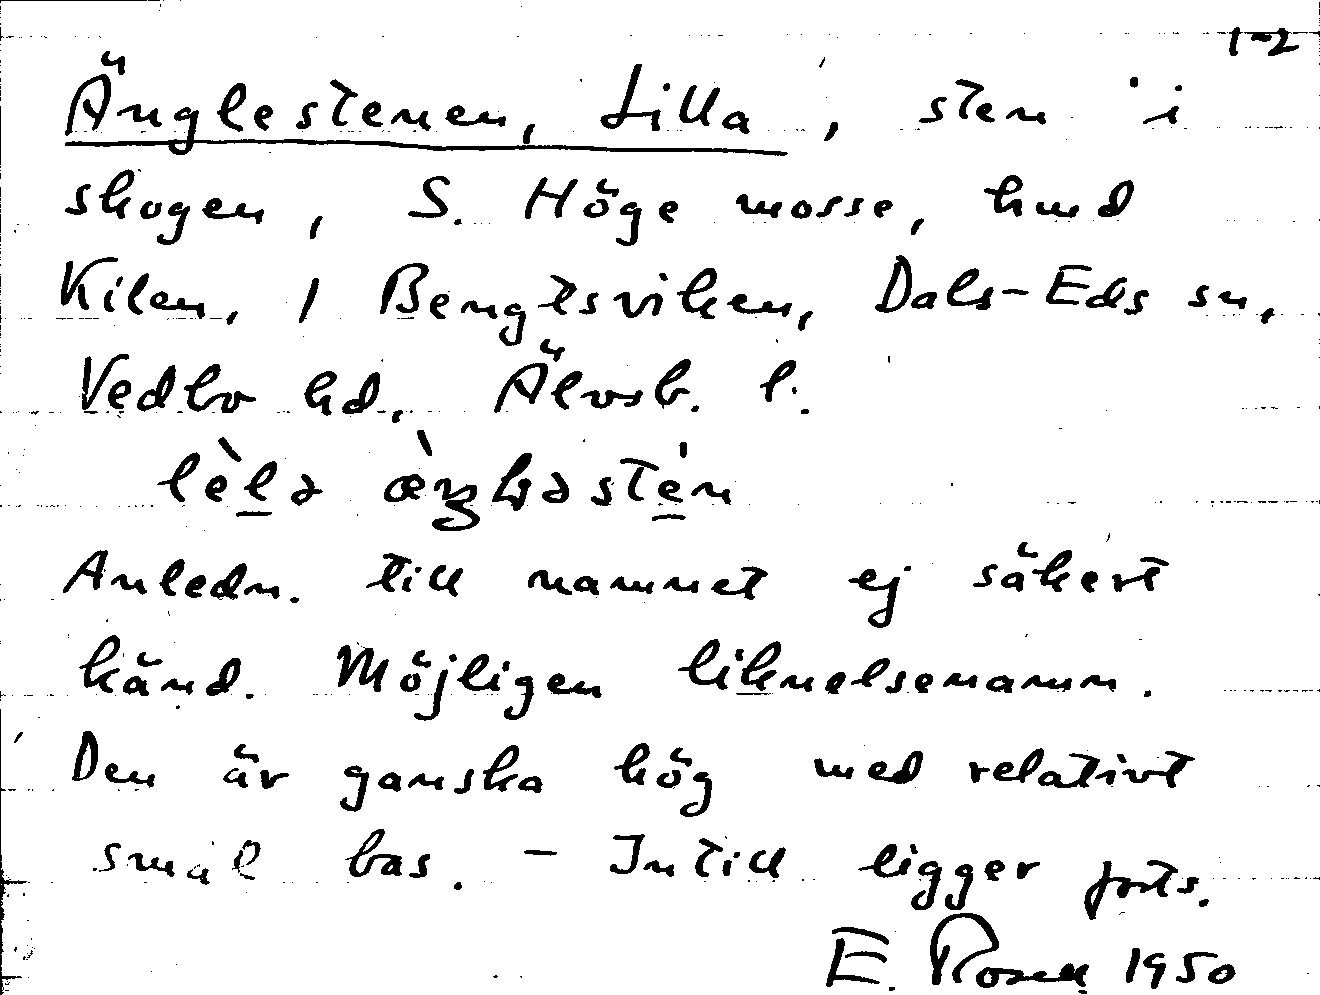 1-2
Änglestenen, Lilla, sten i
skogen, S. Höge mosse, hmd
Kilen, 1 Bengtsviken, Dals-Eds sn,
Vedbo hd, Älvsb. l.
Anledn. till namnet ej säkert
känd. Möjligen liknelsenamn.
Den är ganska hög med relativt
smal bas. - Intill ligger forts.
E. Rosell 1950